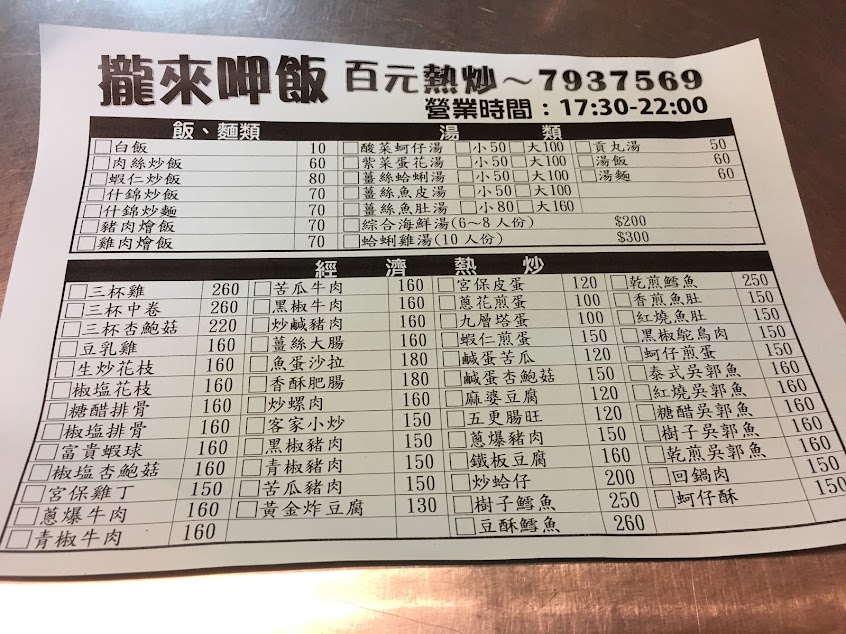 攏來呷飯 百元熱炒～7937569
營業時間：17:30-22:00
飯、麵類 湯類
白飯 10 酸菜蚵仔湯 小50 大100 貢丸湯 50
肉絲炒飯 60 紫菜蛋花湯 小50 大100 湯飯 60
蝦仁炒飯 80 薑絲蛤蜊湯 小50 大100 湯麵 60
什錦炒飯 70 薑絲魚皮湯 小50 大100
什錦炒麵 70 薑絲魚肚湯 小80 大160
豬肉燴飯 70 綜合海鮮湯(6~8人份) $200
雞肉燴飯 70 蛤蜊雞湯(10人份) $300
經濟熱炒
三杯雞 260 苦瓜牛肉 160 宮保皮蛋 120 乾煎鱈魚 250
三杯中卷 260 黑椒牛肉 160 蔥花煎蛋 100 香煎魚肚 150
三杯杏鮑菇 220 炒鹹豬肉 160 九層塔蛋 100 紅燒魚肚 150
豆乳雞 160 薑絲大腸 160 蝦仁煎蛋 150 黑椒鴕鳥肉 150
生炒花枝 160 魚蛋沙拉 180 鹹蛋苦瓜 120 蚵仔煎蛋 150
椒塩花枝 160 香酥肥腸 180 鹹蛋杏鮑菇 150 泰式吳郭魚 160
糖醋排骨 160 炒螺肉 160 麻婆豆腐 120 紅燒吳郭魚 160
椒塩排骨 160 客家小炒 150 五更腸旺 120 糖醋吳郭魚 160
富貴蝦球 160 黑椒豬肉 150 蔥爆豬肉 150 樹子吳郭魚 160
椒塩杏鮑菇 160 青椒豬肉 150 鐵板豆腐 160 乾煎吳郭魚 160
宮保雞丁 150 苦瓜豬肉 150 炒蛤仔 200 回鍋肉 150
蔥爆牛肉 160 黃金炸豆腐 130 樹子鱈魚 250 蚵仔酥 150
青椒牛肉 160 豆酥鱈魚 260